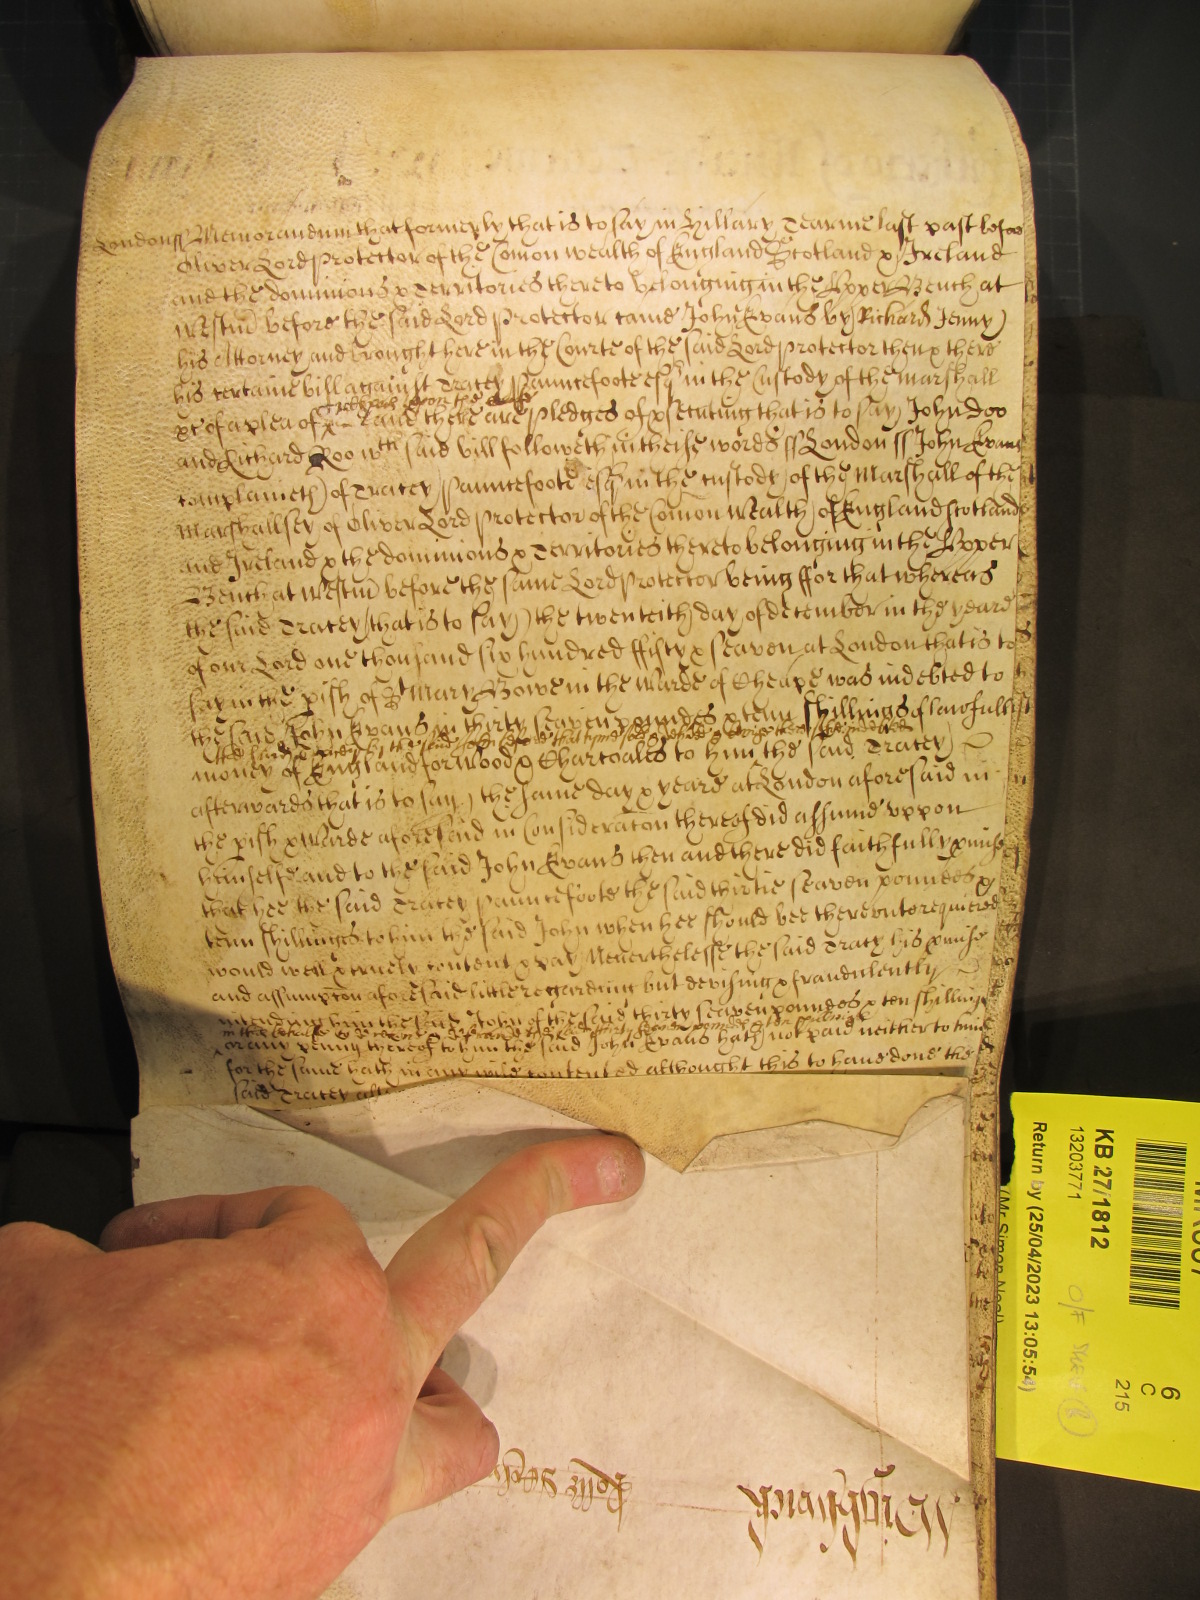 London ss Memorandum that formerly that is to say in Hillary Tearme last past before
Oliver Lord Protector of the Comon wealth of England Scotland & Ireland
and the dominions & Territories thereto belonging in the Upper Bench at
Westm̄ before the said Lord Protector came John Evans by Richard Jenny
his Attorney and brought here in the Courte of the said Lord Protector then & there
his certaine bill against Tracey Pauncefoote esqr in the Custody of the marshall
trespas upon the Case
&c of a plea of And there are pledges of psecuting that is to say John doo
and Richard Roo wch said bill followeth in theise words ss London ss John Evans
complaineth of Tracey Pauncefoote esqr in the custody of the Marshall of the
Marshallsey of Oliver Lord Protector of the Comon Wealth of England Scotland
and Ireland & the dominions & Territories thereto belonging in the Upper
Bench at Westm̄ before the same Lord Protector being ffor that whereas
the said Tracey that is to say the twenteith day of december in the yeare
of our Lord one thousand six hundred ffifty & seaven at London that is to
say in the pish of St Mary Bowe in the Warde of Cheape was indebted to
the said John Evans in thirty seaven poundes & tenn shillings of lawfull
money of England for Wood & Charcoales to him the said Tracey
afterwards that is to say the same day & yeare at London aforesaid in
the pish & Warde aforesaid in Consideracon thereof did assume uppon
himselfe and to the said John Evans then and there did faithfully pmise
that hee the said Tracey Pauncefoote the said thirtie seaven poundes &
tenn shillinges to him the said John when hee should bee thereunto required
would well & truely content & pay Neverthelesse the said Tracey his pmise
and assumpcon aforesaid little regarding but devising & fraudulently
intending him the said John of the said thirty seaven poundes & ten shillings
or any penny thereof to him the said John Evans hath not paid neither to him
for the same hath in any wise contented althought this to have done the
said Tracey
KB 27/1812
13203771
Return by (25/04/2023 13:05:54)
(Mr Simon Neal)
O/F
6
C
215